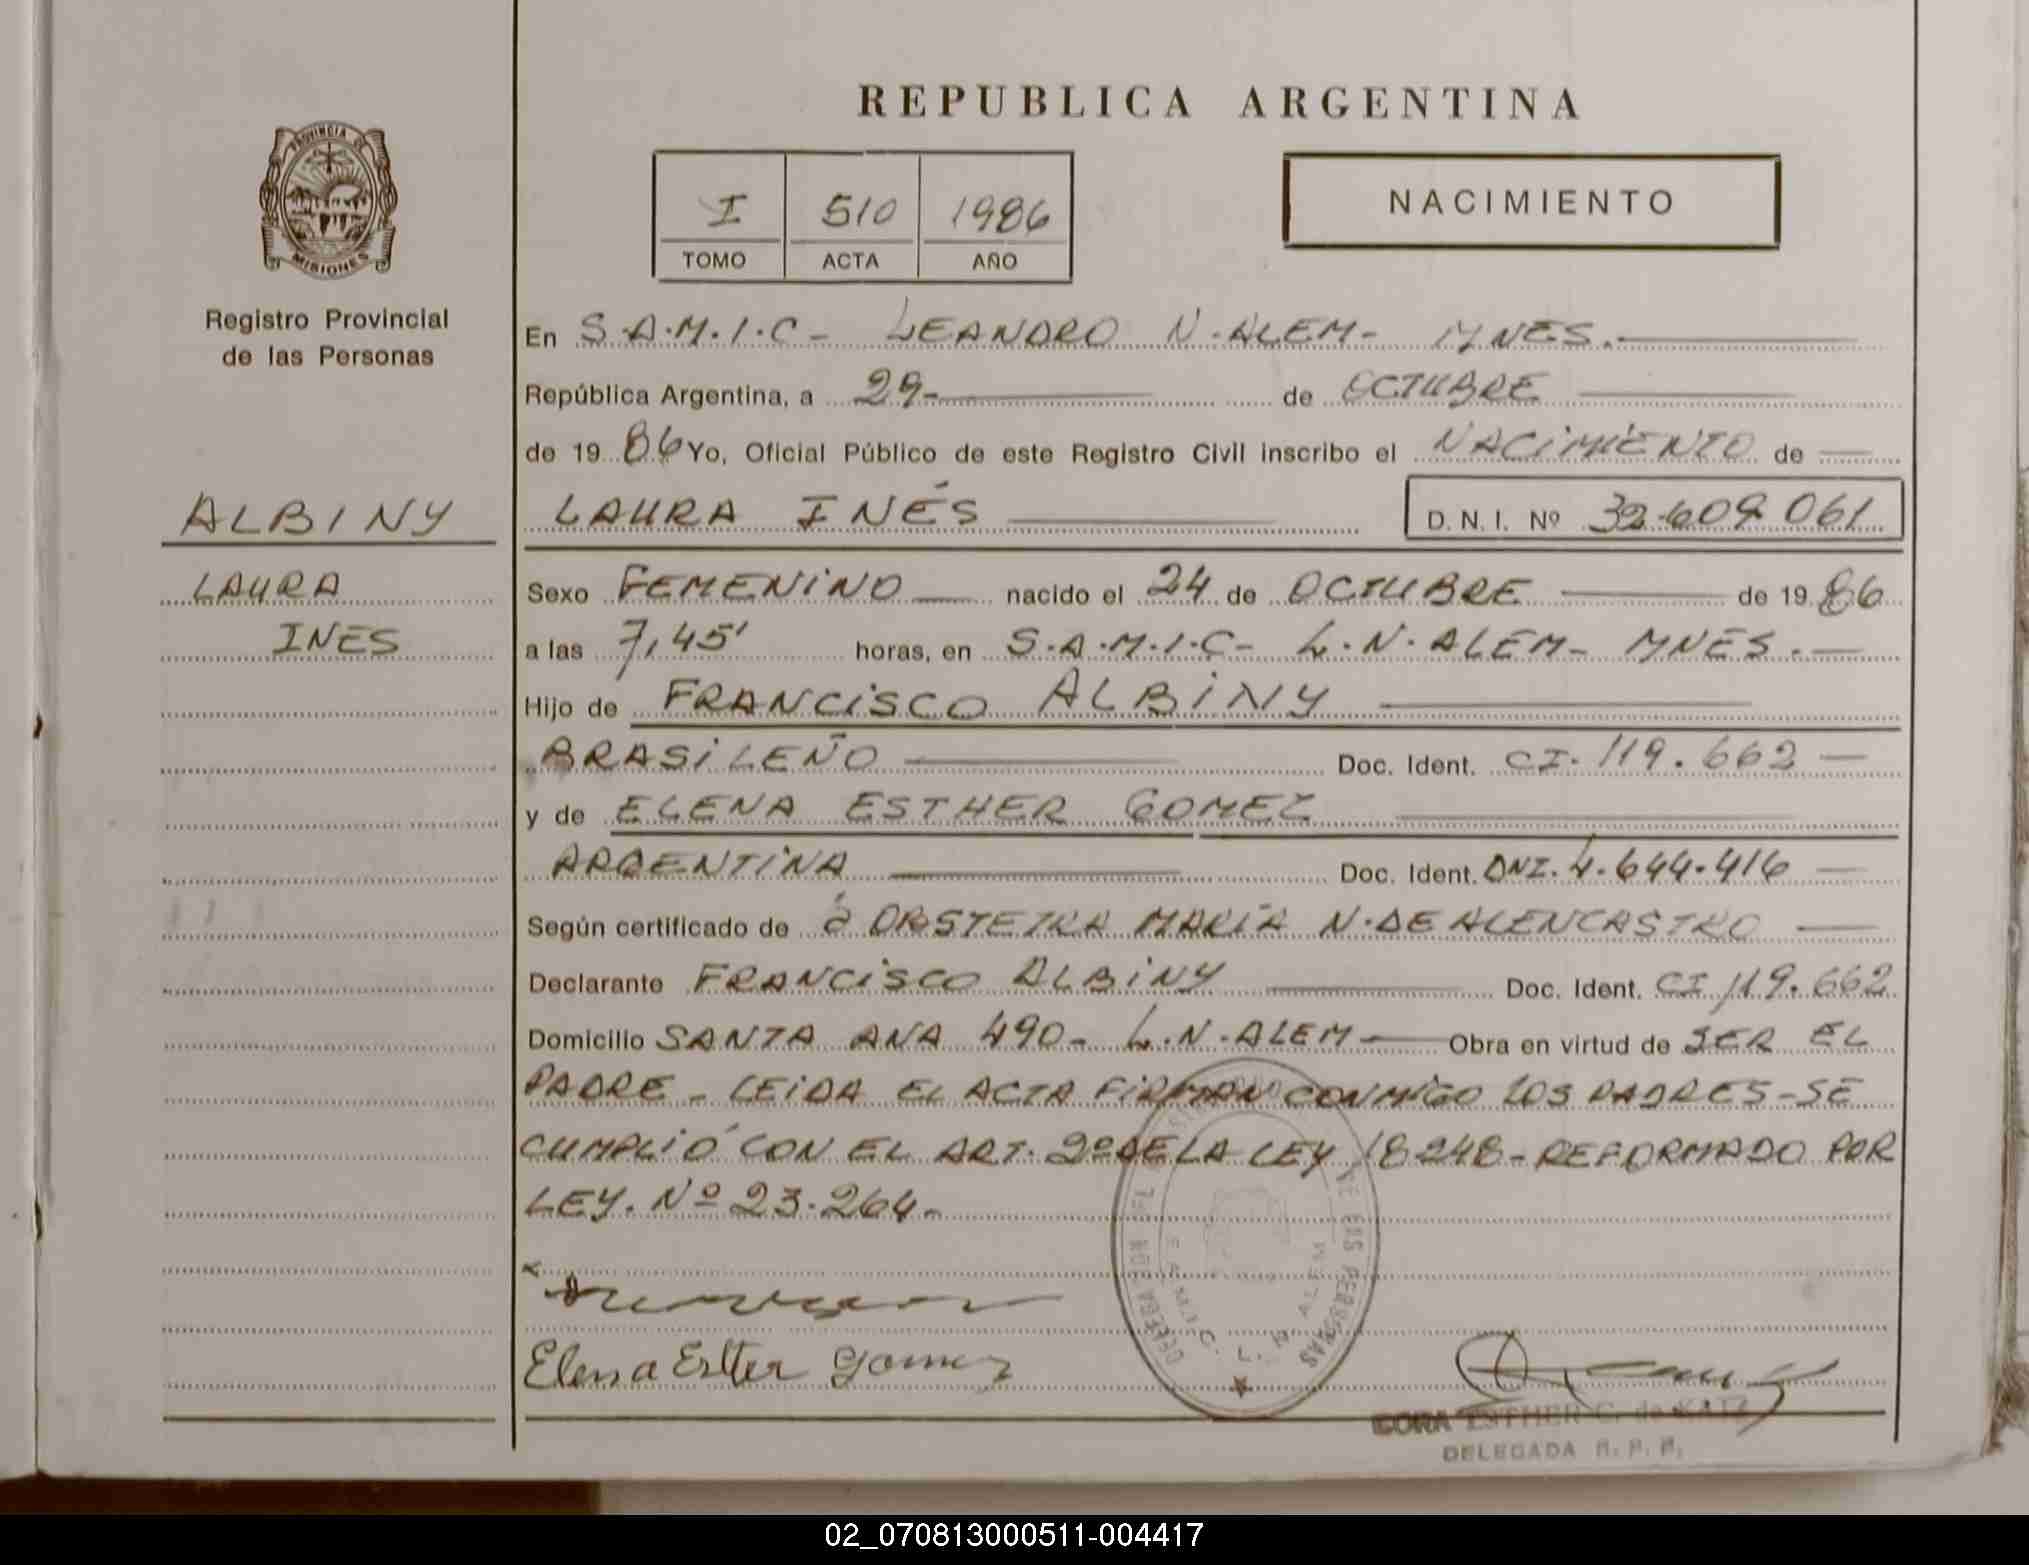 PROVINCIA DE
MISIONES
Registro Provincial
de las Personas
ALBINY
LAURA
INES
REPUBLICA ARGENTINA
I 510 1986
TOMO ACTA AÑO
NACIMIENTO
En S.A.M.I.C- LEANDRO N.ALEM- MNES.
República Argentina, a 29- de OCTUBRE
de 1986 Yo, Oficial Público de este Registro Civil inscribo el NACIMIENTO de
LAURA INÉS D.N.I. Nº 32.609.061
Sexo FEMENINO nacido el 24 de OCTUBRE de 1986
a las 7,45' horas, en S.A.M.I.C- L.N.ALEM- MNES.
Hijo de FRANCISCO ALBINY
BRASILEÑO Doc. Ident. CI. 119.662
y de ELENA ESTHER GOMEZ
ARGENTINA Doc. Ident. DNI. 4.644.416
Según certificado de OBSTETRA MARÍA N.DE ALENCASTRO
Declarante FRANCISCO ALBINY Doc. Ident. CI 119.662
Domicilio SANTA ANA 490- L.N.ALEM Obra en virtud de SER EL
PADRE - LEIDA EL ACTA FIRMAN CONMIGO LOS PADRES-SE
CUMPLIÓ CON EL ART. 2º DE LA LEY 18.248- REFORMADO POR
LEY. Nº 23.264-
Elena Esther Gomez
DORA ESTHER C. de KATZ
DELEGADA R. P. P.
02_070813000511-004417